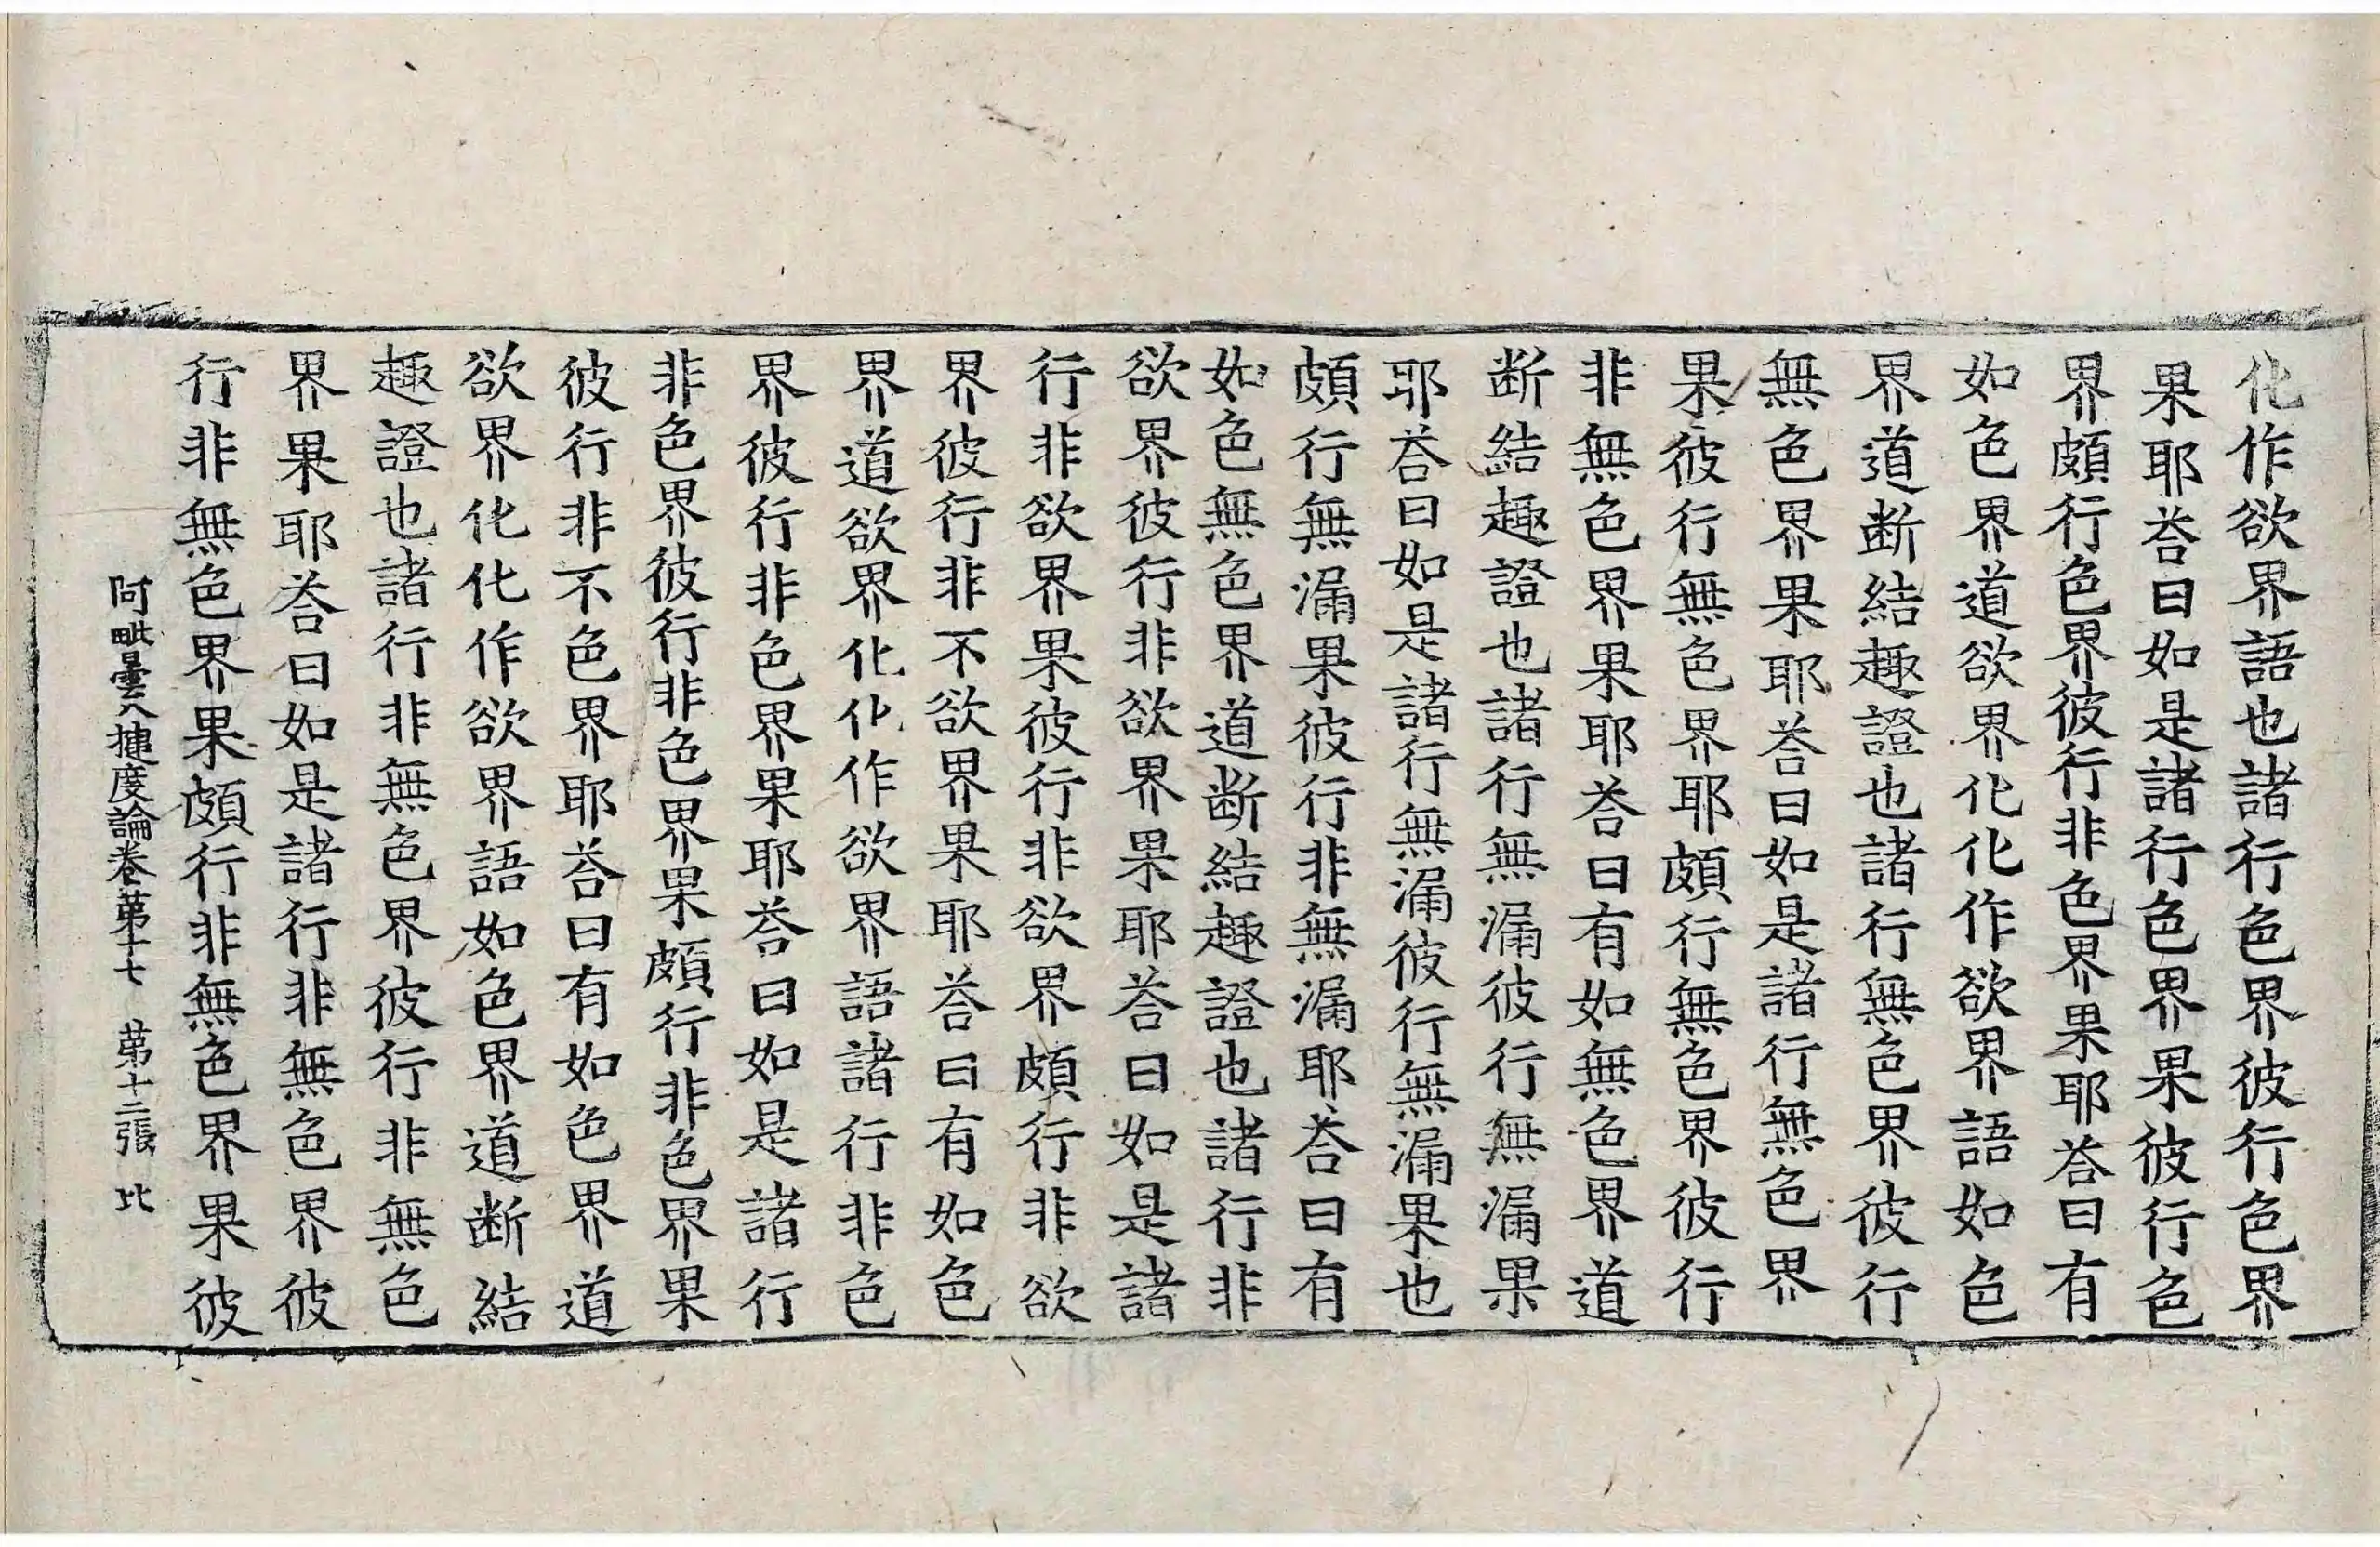 化作欲界語也諸行色界彼行色界
果耶荅曰如是諸行色界果彼行色
界頗行色界彼行非色界果耶荅曰有
如色界道欲界化化作欲界語如色
界道断結趣證也諸行無色界彼行
無色界果耶荅曰如是諸行無色界
果彼行無色界耶頗行無色界彼行
非無色界果耶荅曰有如無色界道
断結趣證也諸行無漏彼行無漏果
耶荅曰如是諸行無漏彼行無漏果也
頗行無漏果彼行非無漏耶荅曰有
如色無色界道断結趣證也諸行非
欲界彼行非欲界果耶荅曰如是諸
行非欲界果彼行非欲界頗行非欲
界彼行非不欲界果耶荅曰有如色
界道欲界化化作欲界語諸行非色
界彼行非色界果耶荅曰如是諸行
非色界彼行非色界果頗行非色界果
彼行非不色界耶荅曰有如色界道
欲界化化作欲界語如色界道断結
趣證也諸行非無色界彼行非無色
界果耶荅曰如是諸行非無色界彼
行非無色界果頗行非無色界果彼
阿毗曇八揵度論卷苐十七 苐十二張 比